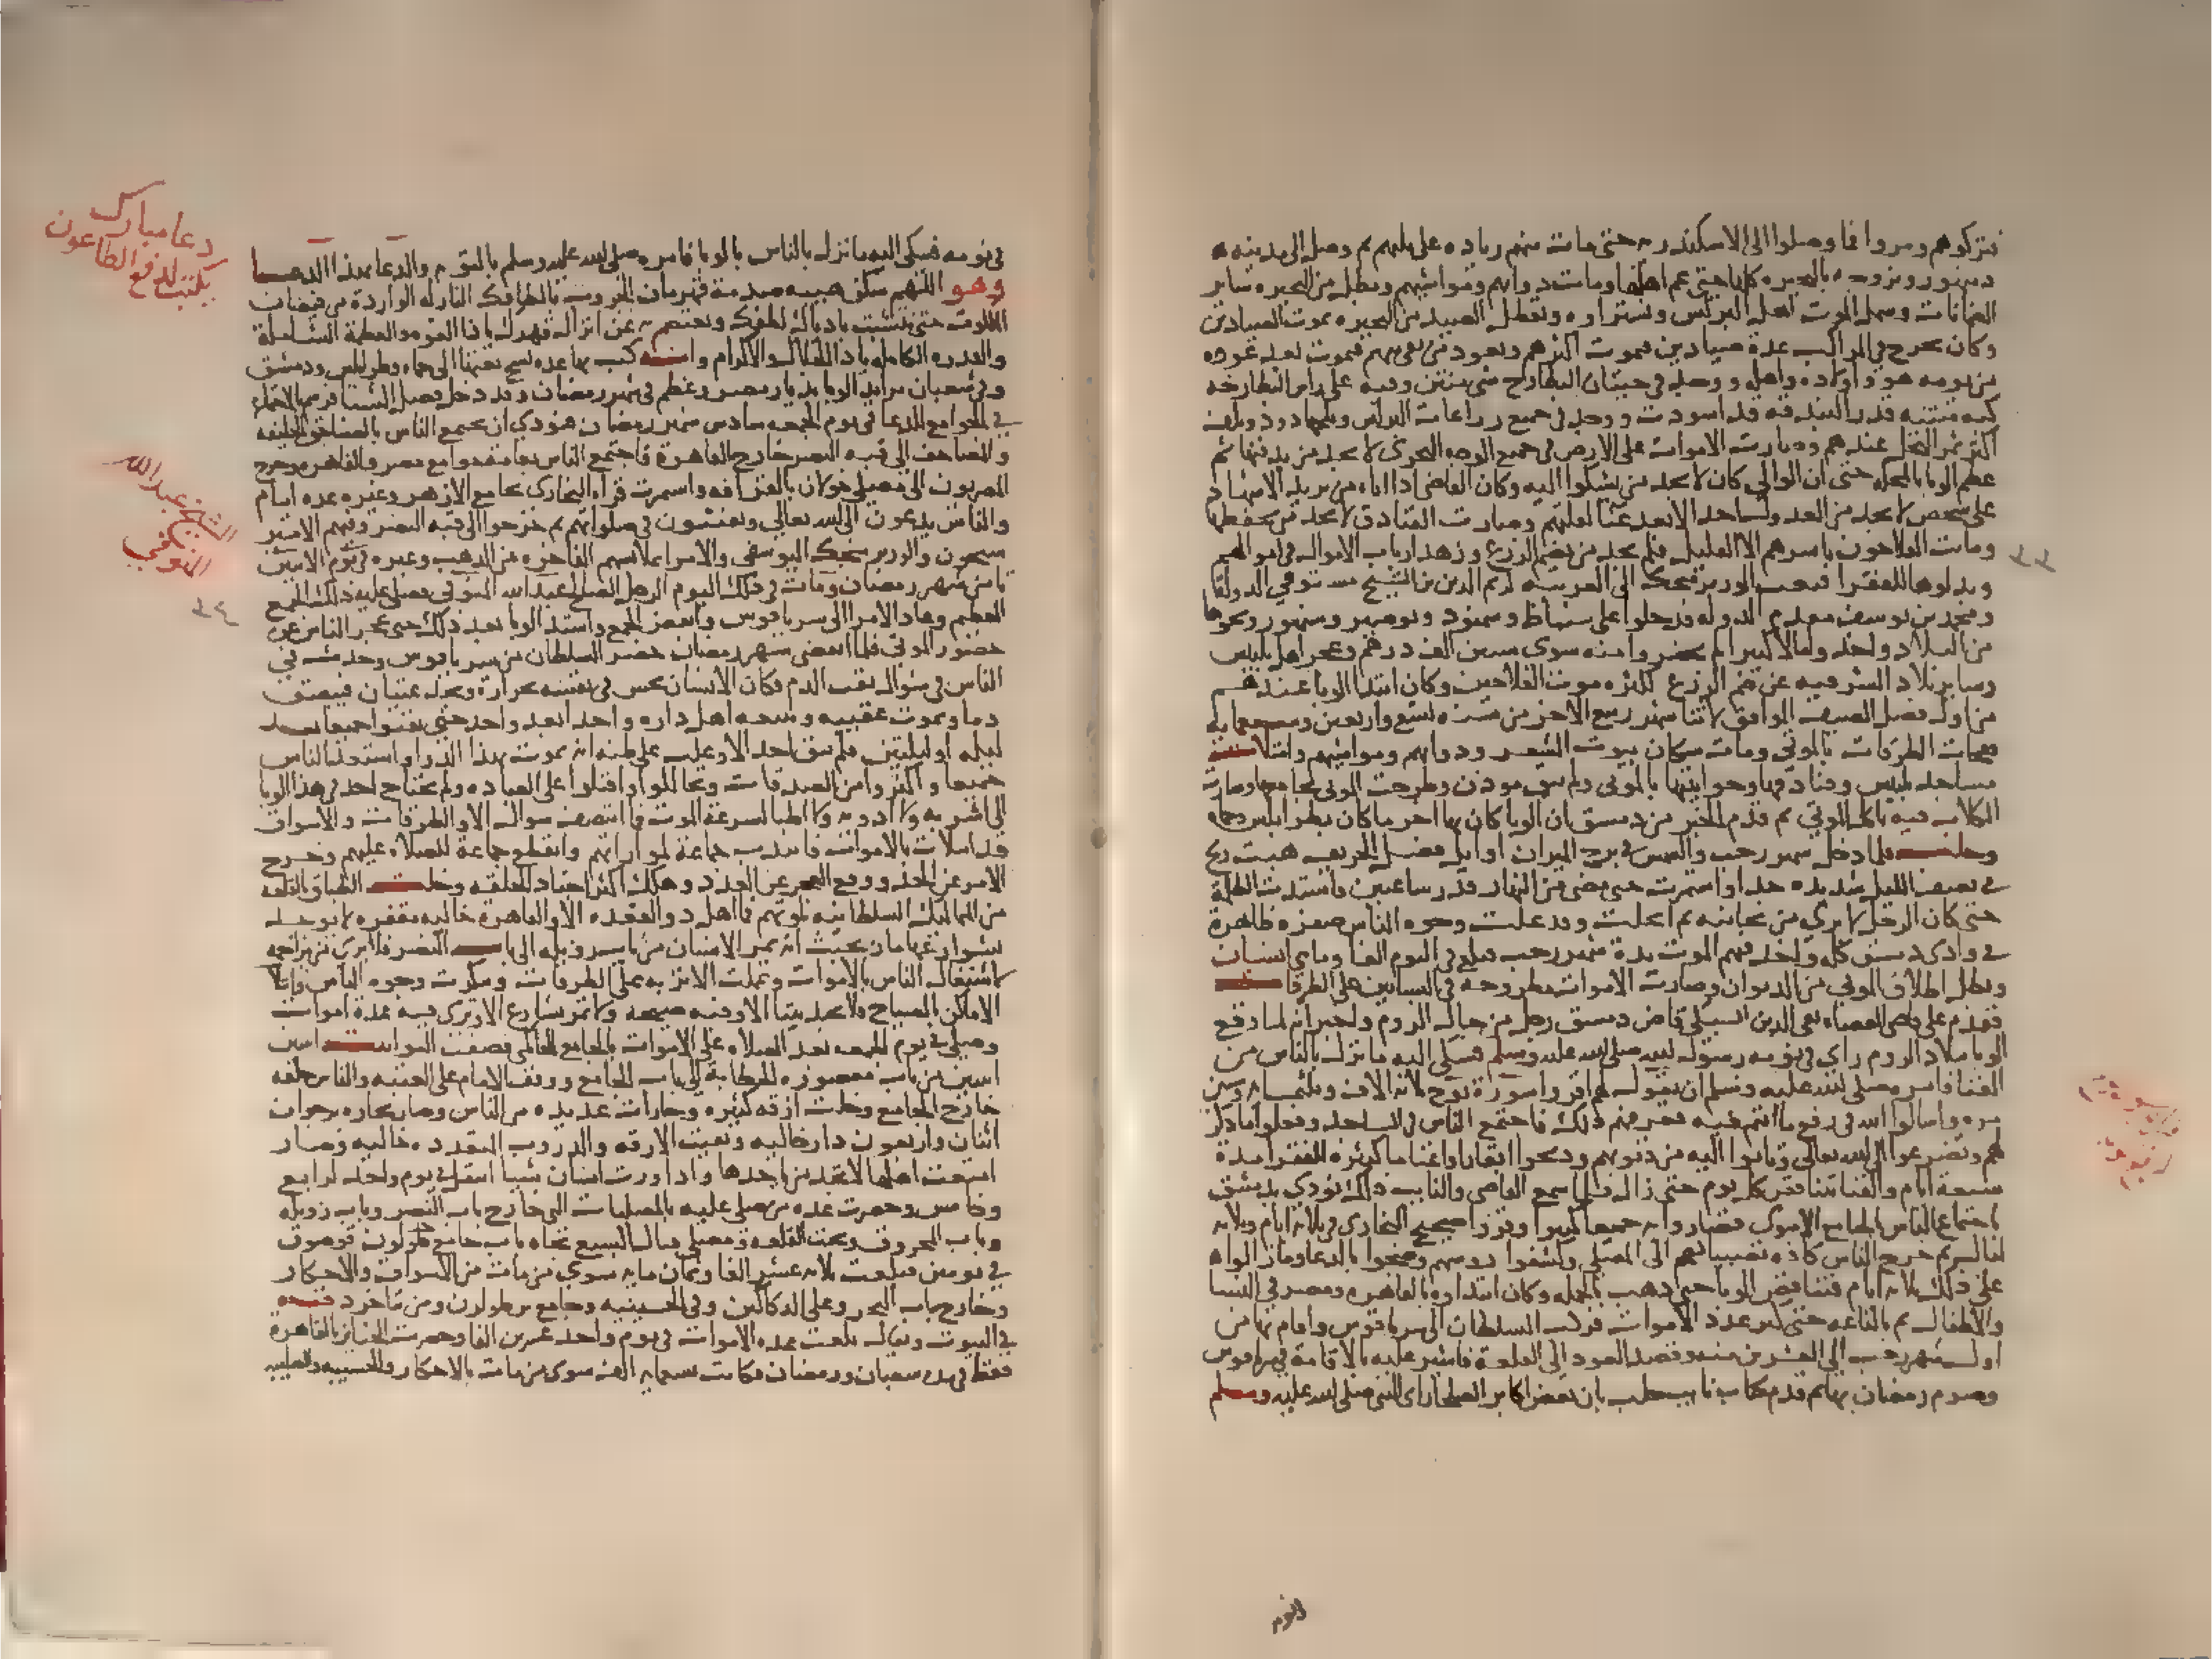 فتركوهم ومروا فما وصلوا الى الاسكندريه حتى مات منهم زياده على ثلثهم ثم وصل الى مدينه
دمنهور وتروجه بالبحيره كلها حتى عم اهلها وماتت دوابهم ومواشيهم وبطل من البحيره ساير
الضمانات وشمل الموت اهل البرلس ونستراوه وتعطل الصيد من البحيره بموت الصيادين
وكان يخرج في المراكب عدة صيادين فيموت اكثرهم ويعود من بقى منهم فيموت بعد عوده
من يومه هو واولاده واهله ووجد في حيتان البطارخ شى منتن وفيه على راس البطارخه
كبه منتنه قدر البندقه قد اسودت ووجد في جميع زراعات البرلس وبلحها دود وتلف
اكثر ثمر النخل عندهم وصارت الاموات على الارض في جميع الوجه البحرى لا يجد من يدفنها ثم
عظم الوبا بالمحله حتى ان الوالي كان لا يجد من يشكوا اليه وكان القاضى اذا اتاه من يريد الاشهاد
على شخص لا يجد من العدول شاهدا الا بعد عنا لقلتهم وصارت الفنادق لا يجد من يحفظها
وماتت الفلاحون باسرهم الا القليل فلم يجد من يضم الزرع وزهد ارباب الاموال في اموالهم
وبذلوها للفقرا فبعث الوزير منجك الى الغربيه كريم الدين بن الشيخ مستوفي الدوله
ومحمد بن يوسف مقدم الدوله فدخلوا على سنباط وسمنود وبوصير وسنهور ونحوها
من البلاد واخذوا مالا كثيرا لم يحضروا منه سوى ستين الف درهم وعجز اهل بلبيس
وساير بلاد الشرقيه عن ضم الزرع لكثره موت الفلاحين وكان ابتدا الوبا عندهم
من اول فصل الصيف الموافق لاثنا شهر ربيع الاخر من سنه تسع واربعين وسبعمايه
فجافت الطرقات بالموتى ومات سكان بيوت الشعر ودوابهم ومواشيهم وامتلات
مساجد بلبيس وفنادقها وحوانيتها بالموتى ولم يبق موذن وطرحت الموتى بجامعها وصارت
الكلاب فيه تاكل الموتى ثم قدم الخبر من دمشق ان الوبا كان بها اخر ما كان بطرابلس وحماه
وحلب فلما دخل شهر رجب والشمس في برج الميزان اوايل فصل الخريف هبت ريح
في نصف الليل شديده جدا واستمرت حتى مضى من النهار قدر ساعتين فاشتدت الظلمة
حتى كان الرجل لا يرى من بجانبه ثم انجلت وقد علت وجوه الناس صفره ظاهرة
في وادى دمشق كله واخذ فيهم الموت مدة شهر رجب فبلغ في اليوم الفا ومايتى انسان
وبطل اطلاق الموتى من الديوان وصارت الاموات مطروحه في البساتين على الطرقات
فقدم على قاضى القضاه تقى الدين السبكى قاضى دمشق رجل من جبال الروم واخبر انه لما وقع
الوبا ببلاد الروم راى في نومه رسول الله صلى الله عليه وسلم فشكى اليه ما نزل بالناس من
الفنا فامره صلى الله عليه وسلم ان يقول لهم اقروا سورة نوح ثلاثه الاف وثلثمايه وستين
مره واسالوا الله في رفع ما انتم فيه فعرفهم ذلك فاجتمع الناس في المساجد وفعلوا ما ذكر
لهم وتضرعوا الى الله تعالى وتابوا اليه من ذنوبهم وذبحوا ابقارا واغناما كثيره للفقرا مدة
سبعة ايام والفنا يتناقص كل يوم حتى زال فلما سمع القاضى والنايب ذلك نودى بدمشق
باجتماع الناس بالجامع الاموى فصاروا به جميعا كثيرا وقروا صحيح البخارى في ثلاثه ايام وثلاثه
ليال ثم خرج الناس كافه بصبيانهم الى المصلى وكشفوا روسهم وضجوا بالدعا وما زالوا
على ذلك ثلاثه ايام فتناقص الوبا حتى ذهب بالجمله وكان ابتداوه بالقاهره ومصر في النسا
والاطفال ثم بالباعه حتى كثر عدد الاموات فركب السلطان الى سرياقوس واقام بها من
اول شهر رجب الى العشرين منه وقصد العود الى القلعة فاشير عليه بالاقامة في سرياقوس
وصوم رمضان بها ثم قدم كتاب نايب حلب بان بعض اكابر الصلحا راى النبى صلى الله عليه وسلم
في نومه فشكى اليه ما نزل بالناس بالوبا فامره صلى الله عليه وسلم بالتوبة والدعا بهذا الدعا
وهو اللهم سكن هيبه صدمة قهرمان الجبروت بالطافك النازله الواردة من فيضان
الملكوت حتى نتشبث باذيال لطفك ونعتصم بك عن انزال قهرك ياذا القوه والعظمة الشاملة
والقدره الكامله ياذا الجلال والاكرام وانه كتب بها عده نسخ بعثها الى حماه وطرابلس ودمشق
وفي شعبان تزايد الوبا بديار مصر وعظم في شهر رمضان وقد دخل فصل الشتا فرسم بالاجتماع
في الجوامع للدعا في يوم الجمعه سادس شهر رمضان فنودى ان يجتمع الناس بالصناجق الخليفه
والمصاحف الى قبه النصر خارج القاهرة فاجتمع الناس بعامة جوامع مصر والقاهره وخرج
المصريون الى مصلى خولان بالقرافه واستمرت قراه البخارى بجامع الازهر وغيره عده ايام
والناس يدعون الى الله تعالى ويقنتون في صلواتهم ثم خرجوا الى قبه النصر وفيهم الامير
شيخون والوزير منجك اليوسفى والامرا بملابسهم الفاخره من الذهب وغيره في يوم الاثنين
ثامن شهر رمضان ومات في ذلك اليوم الرجل الصالح عبد الله المنوفي فصلى عليه ذلك الجمع
العظيم وعاد الامرا الى سرياقوس وانفض الجمع واشتد الوبا بعد ذلك حتى عجز الناس عن
حصر الموتى فلما انقضى شهر رمضان حضر السلطان من سرياقوس وحدث في
الناس في شوال نفث الدم فكان الانسان يحس في نفسه بحرارة ويجد غثيان فيبصق
دما ويموت عقيبه ويتبعه اهل داره واحدا بعد واحد حتى يفنوا جميعا بعد
ليله او ليلتين فلم يبق احد الا وغلب على ظنه انه يموت بهذا الدا واستعد الناس
جميعا واكثروا من الصدقات وتحاللوا واقبلوا على العباده ولم يحتاج احد في هذا الوبا
الى اشربه ولا ادويه ولا اطبا لسرعة الموت فما انتصف شوال الا والطرقات والاسواق
قد امتلات بالاموات فانتدب جماعة لمواراتهم وانقطع جماعة للصلاه عليهم وخرج
الامر عن الحد ووقع العجز عن العدد وهلك اكثر اجناد الحلقه وخلت الطباق بالقلعه
من المماليك السلطانيه لموتهم فما اهل ذو القعده الا والقاهرة خاليه مقفره لا يوجد
بشوارعها مار بحيث انه يمر الانسان من باب زويله الى باب النصر فلا يرى من يزاحمه
لاشتغال الناس بالاموات وعلت الاتربه على الطرقات وتنكرت وجوه الناس وامتلات
الاماكن بالصياح فلا تجد بيتا الا وفيه صيحه ولا تمر بشارع الا وترى فيه عدة اموات
وصلى في يوم الجمعه بعد الصلاه على الاموات بالجامع الحاكمى فصفت التوابيت اثنين
اثنين من باب مقصوره الخطابة الى باب الجامع ووقف الامام على العتبه والناس خلفه
خارج الجامع وخلت ازقه كثيره وحارات عديده من الناس وصار بحاره برجوان
اثنان واربعون دارا خاليه وبقيت الازقه والدروب المتعدده خاليه وصار
امتعت اهلها لا تجد من ياخذها واذا ورث انسان شيئا انتقل في يوم واحد لرابع
وخامس وحصرت عده من صلى عليه بالمصليات التى خارج باب النصر وباب زويله
وباب المحروق وتحت القلعه ومصلى قتال السبع تجاه باب جامع قوصون
في يومين فبلغت ثلاثه عشر الفا وثمان مايه سوى من مات من الاسواق والاحكار
وخارج باب البحر وعلى الدكاكين وفي الحسينيه وجامع بن طولون ومن تاخر دفنه
في البيوت ويقال بلغت عده الاموات في يوم واحد عشرين الفا وحصرت الجنايز بالقاهرة
فقط في مده شعبان ورمضان فكانت تسعمايه الف سوى من مات بالاحكار والحسينيه والصليبه
دعا مبارك
يكتب لدفع الطاعون
الشيخ عبد الله
المنوفي